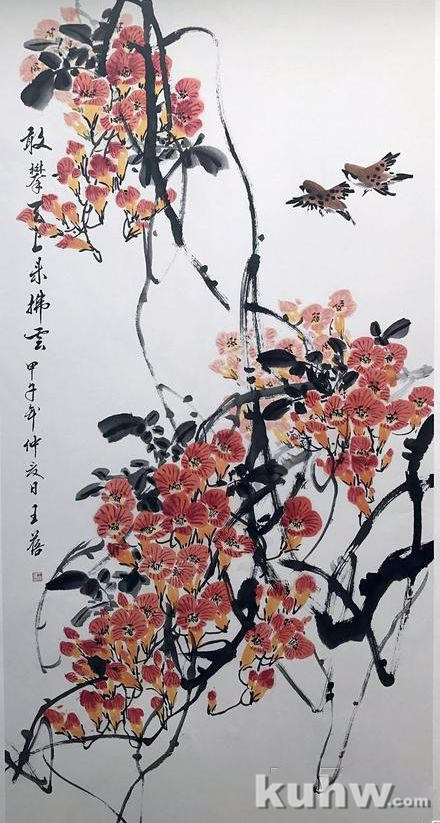 敢攀天上来拂雲 甲子年仲夏日 王
kuhw.com